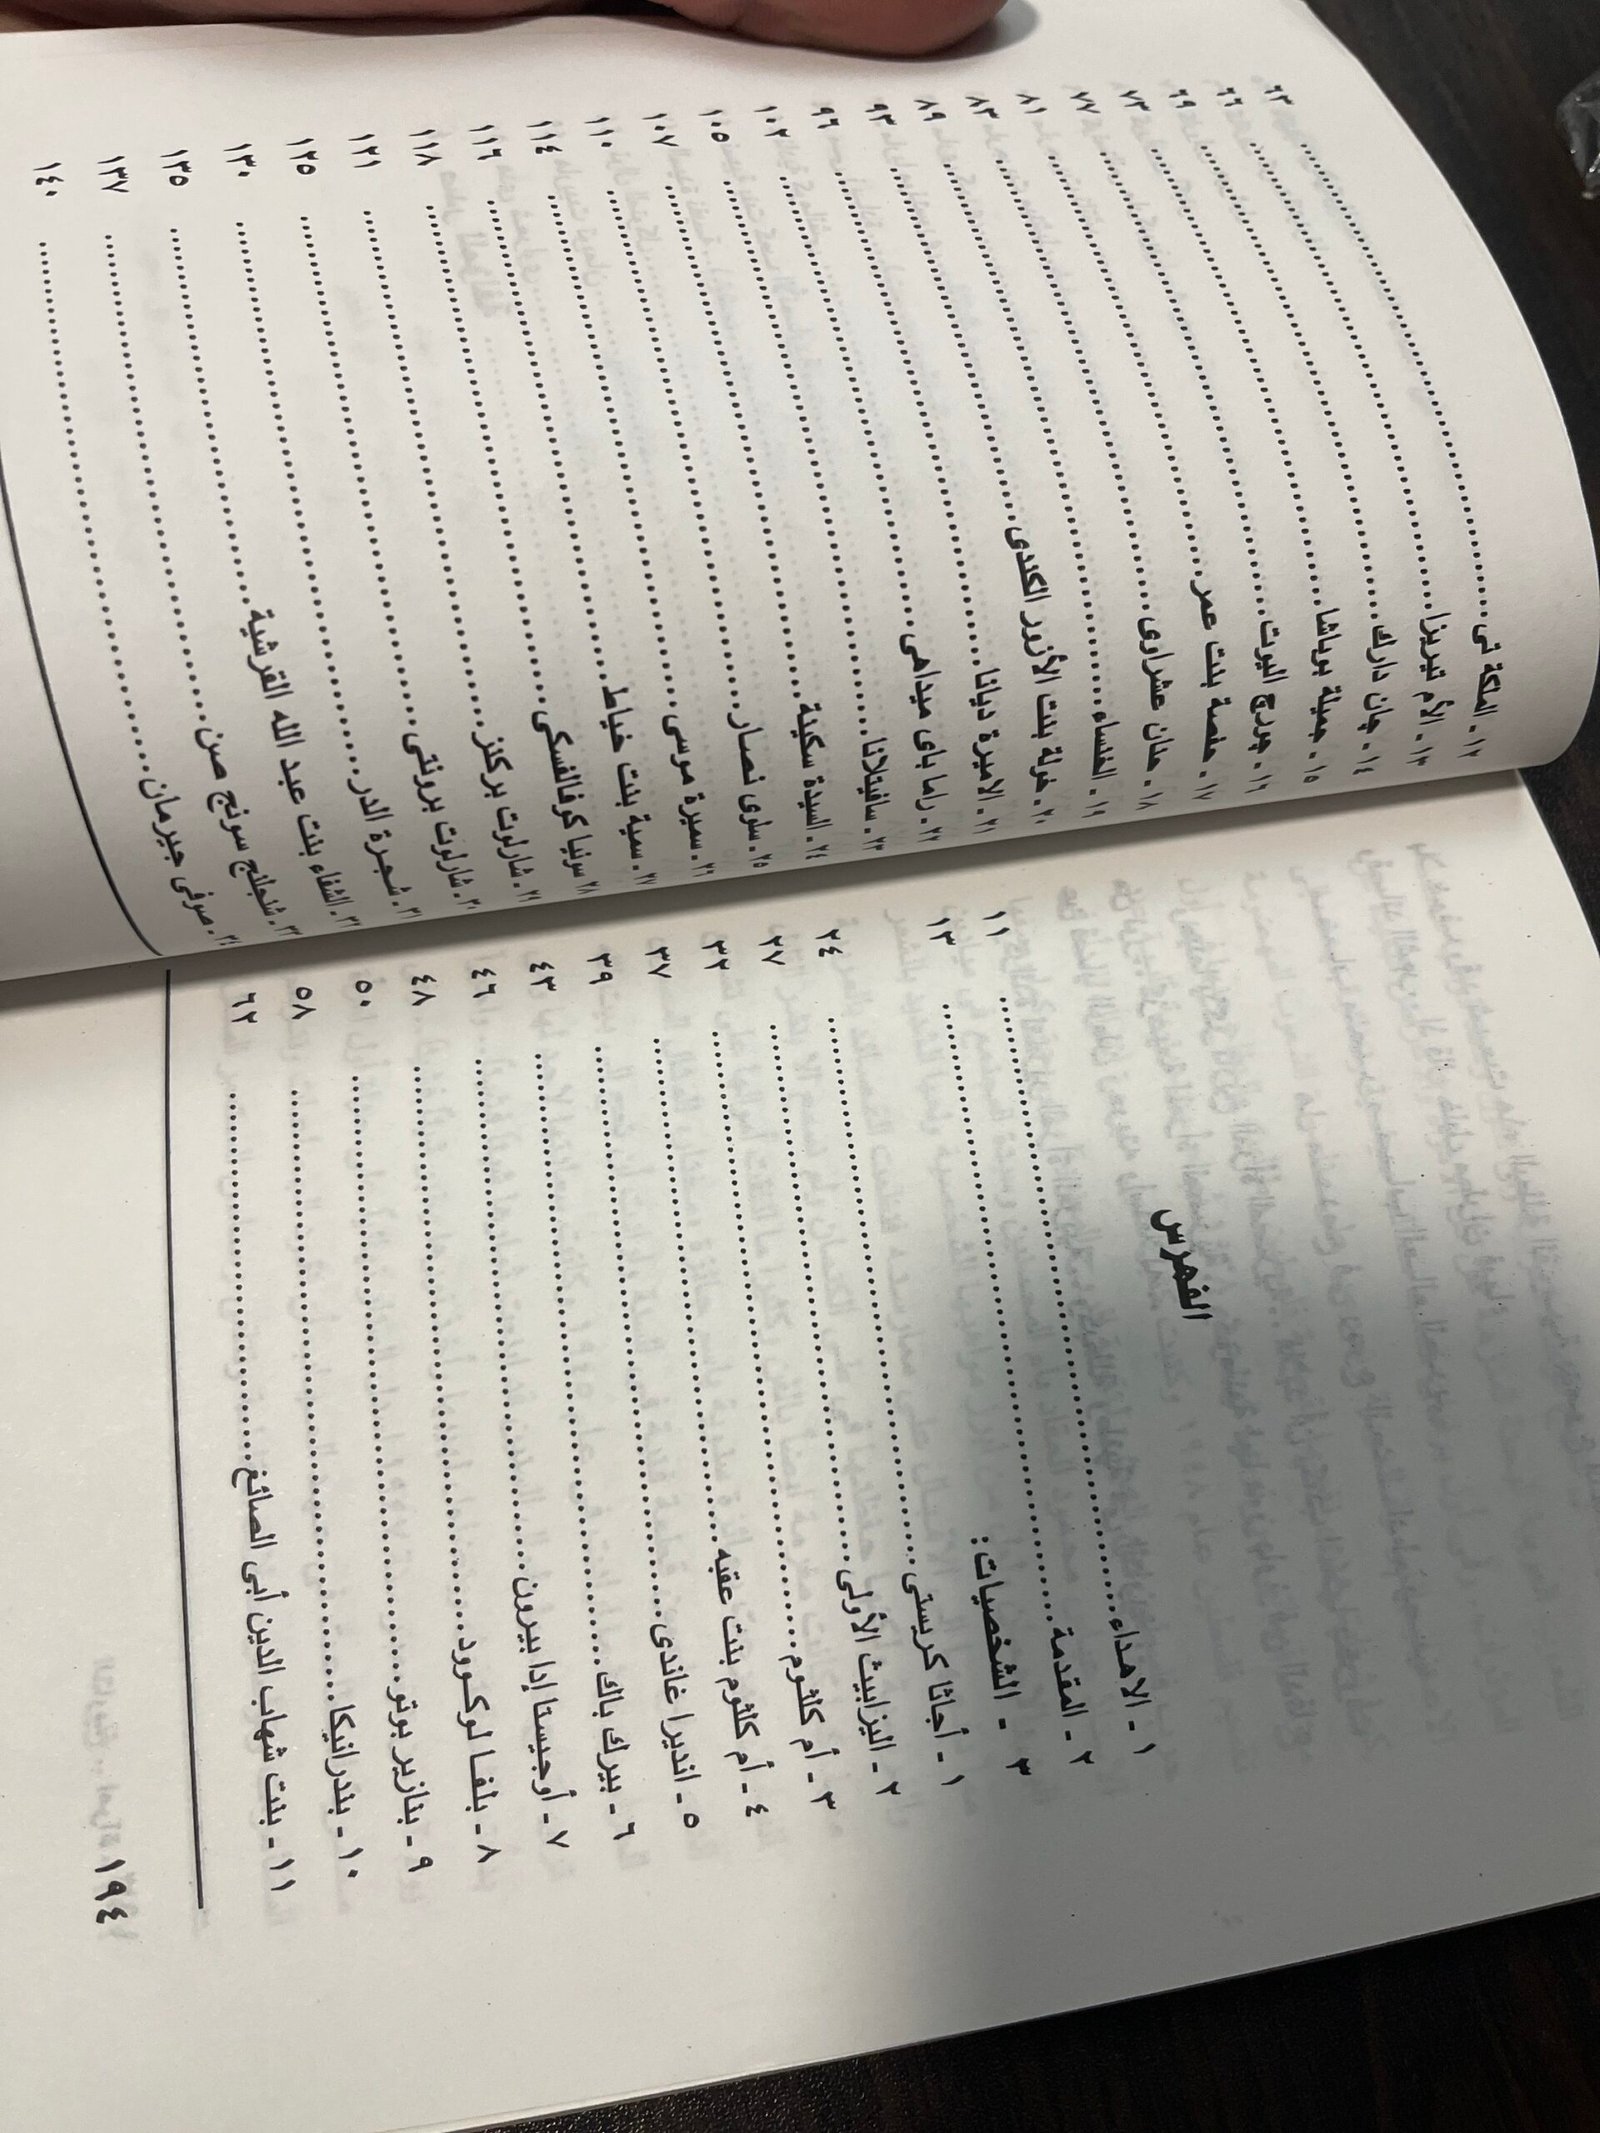 الفهرس
١ - الاهداء .......... ١١
٢ - المقدمة .......... ١٣
٣ - الشخصيات:
١ - أجاثا كريستى .......... ٢٤
٢ - اليزابيث الأولى .......... ٢٧
٣ - أم كلثوم .......... ٣٢
٤ - أم كلثوم بنت عقبه .......... ٣٧
٥ - انديرا غاندى .......... ٣٩
٦ - بيرك باك .......... ٤٣
٧ - أوجيستا إدا بيرون .......... ٤٦
٨ - بلفا لوكوود .......... ٤٨
٩ - بنازير بوتو .......... ٥٠
١٠ - بندرانيكا .......... ٥٨
١١ - بنت شهاب الدين أبى الصائغ .......... ٦٢
١٩٤
١٢ - الملكة تى .......... ٦٣
١٣ - الأم تيريزا .......... ٦٦
١٤ - جان دارك .......... ٦٩
١٥ - جميلة بوباشا .......... ٧٣
١٦ - جورج اليوت .......... ٧٧
١٧ - حفصة بنت عمر .......... ٨١
١٨ - حنان عشراوى .......... ٨٣
١٩ - الخنساء .......... ٨٩
٢٠ - خولة بنت الأزور الكندى .......... ٩٣
٢١ - الاميرة ديانا .......... ٩٦
٢٢ - راما باى ميداهى .......... ١٠٢
٢٣ - سافيتلانا .......... ١٠٥
٢٤ - السيدة سكينة .......... ١٠٧
٢٥ - سلوى نصار .......... ١١٠
٢٦ - سميرة موسى .......... ١١٤
٢٧ - سمية بنت خياط .......... ١١٦
٢٨ - سونيا كوفالفسكى .......... ١١٨
٢٩ - شارلوت بركنز .......... ١٢١
٣٠ - شارلوت برونتى .......... ١٢٥
٣١ - شجرة الدر .......... ١٣٠
٣٢ - الشفاء بنت عبد الله القرشية .......... ١٣٥
٣٣ - شنجلنج سونج صن .......... ١٣٧
٣٤ - صوفى جيرمان .......... ١٤٠